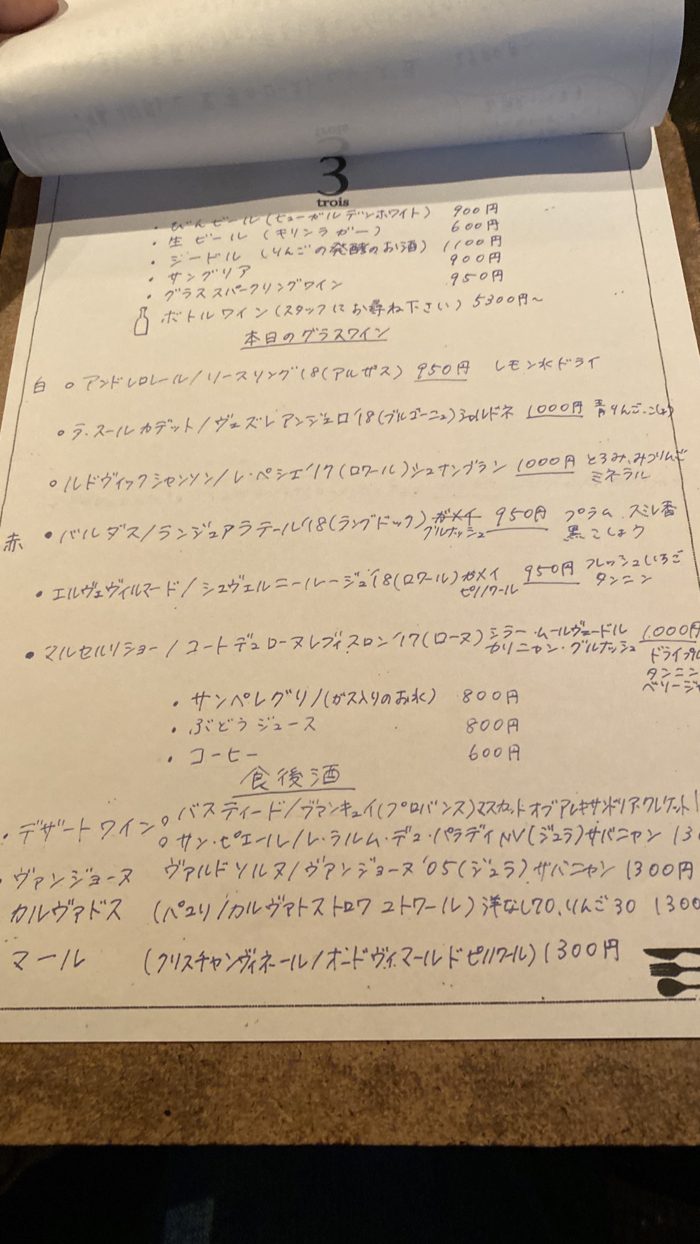 3
trois
・びんビール(ヒューガルデンホワイト) 900円
・生ビール (キリンラガー) 600円
・シードル (りんごの発酵のお酒) 1100円
・サングリア 900円
・グラススパークリングワイン 950円
ボトルワイン(スタッフにお尋ね下さい) 5300円～
本日のグラスワイン
白 ○アンドレロレール/リースリング'18(アルザス) 950円 レモン水ドライ
○ラ・スールカデット/ヴェズレアンジェロ'18(ブルゴーニュ)シャルドネ 1000円 青りんご、こしょ
○ルドヴィックシャンソン/レ・ペシエ'17(ロワール)ソーヴィニヨンブラン 1000円 とろみ、みつりんご
ミネラル
赤 ・バルダス/ランジュアラテール'18(ラングドック) ガメイ 950円 プラム スミレ香
グルナッシュ 黒こしょう
・エルヴェヴィルマード/シュヴェルニールージュ'18(ロワール) ガメイ 950円 フレッシュいちご
ピノノワール タンニン
・マルセルリショー/コートデュローヌレヴィスロン'17(ローヌ) シラー・ムールヴェードル 1000円
カリニャン・グルナッシュ ドライプル
タンニン
ベリージャ
・サンペレグリノ(ガス入りのお水) 800円
・ぶどうジュース 800円
・コーヒー 600円
食後酒
・デザートワイン ○バスティード/ヴァンキュイ(プロバンス)マスカットオブアレキサンドリア・クレレット 1
○サン・ピエール/レ・ラルム・デュ・パラディNV(ジュラ)サバニャン 130
・ヴァンジョーヌ ヴァルドソルヌ/ヴァンジョーヌ'05(ジュラ)サバニャン 1300円
カルヴァドス (パコリ/カルヴァドス ) 洋なし70、りんご30 1300
マール (クリスチャンヴィネール/オードヴィ・マールドピノノワール) 1300円